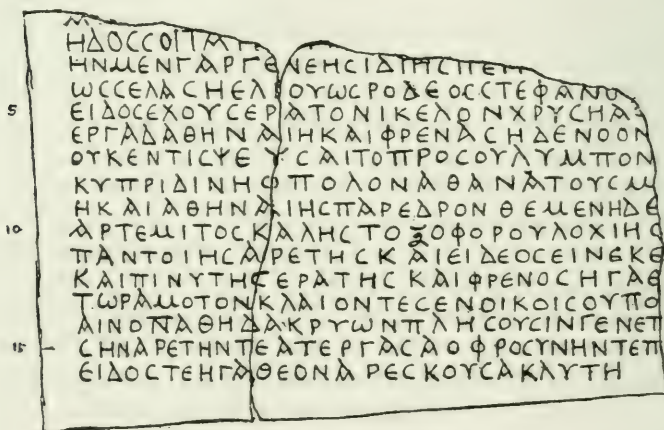 ΗΔΟCCΟΙΤΑ
ΗΝΜΕΝΓΑΡΓΕΝΕΗCΙΔΙΗCΠΕ
ΩCCΕΛΑCΗΕΛΙΟΥΩCΡΟΔΕΟCCΤΕΦΑΝΟ
5 ΕΙΔΟCΕΧΟΥCΕΡΑΤΟΝΙΚΕΛΟΝΧΡΥCΗΑ
ΕΡΓΑΔΑΘΗΝΑΙΗΚΑΙΦΡΕΝΑCΗΔΕΝΟΟΝ
ΟΥΚΕΝΤΙCΨΕΥCΑΙΤΟΠΡΟCΟΥΛΥΜΠΟΝ
ΚΥΠΡΙΔΙΝΗΟΠΟΛΟΝΑΘΑΝΑΤΟΥCΜ
ΗΚΑΙΑΘΗΝΑΙΗCΠΑΡΕΔΡΟΝΘΕΜΕΝΗΔΕ
10 ΑΡΤΕΜΙΤΟCΚΑΛΗCΤΟΞΟΦΟΡΟΥΛΟΧΙΗC
ΠΑΝΤΟΙΗCΑΡΕΤΗCΚΑΙΕΙΔΕΟCΕΙΝΕΚΕ
ΚΑΙΠΙΝΥΤΗCΕΡΑΤΗCΚΑΙΦΡΕΝΟCΗΓΑΕ
ΤΩΡΑΜΟΤΟΝΚΛΑΙΟΝΤΕCΕΝΟΙΚΟΙCΟΥΠΟ
ΑΙΝΟΠΑΘΗΔΑΚΡΥΩΝΠΛΗCΟΥCΙΝΓΕΝΕΤ
15 CΗΝΑΡΕΤΗΝΤΕΑΤΕΡΓΑCΑΟΦΡΟCΥΝΗΝΤΕΠ
ΕΙΔΟCΤΕΗΓΑΘΕΟΝΑΡΕCΚΟΥCΑΚΛΥΤΗ